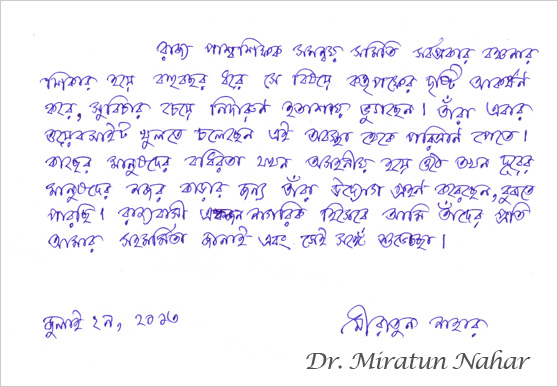 রাজ্য পার্শ্বশিক্ষক সমন্বয় সমিতি সর্বপ্রকার বঞ্চনার
শিকার হয়ে বহুবছর ধরে সে বিষয়ে কর্তৃপক্ষের দৃষ্টি আকর্ষণ
করে, সুবিচার চেয়ে নিদারুন হতাশায় ভুগছেন। তাঁরা এবার
ওয়েবসাইট খুলতে চলেছেন এই অবস্থা থেকে পরিত্রান পেতে।
কাছের মানুষদের বধিরতা যখন অসহনীয় হয়ে ওঠে তখন দূরের
মানুষদের নজর কাড়ার জন্য তাঁরা উদ্যোগ গ্রহন করেছেন, বুঝতে
পারছি। রাজ্যবাসী একজন নাগরিক হিসেবে আমি তাঁদের প্রতি
আমার সহমর্মিতা জানাই এবং সেই সঙ্গে শুভেচ্ছা।
জুলাই ২ন, ২০১৩
মীরাতুন নাহার
Dr. Miratun Nahar